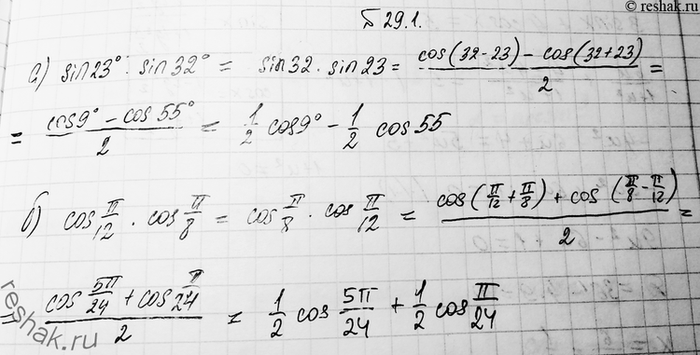 © reshak.ru
Б 29.1.
а) sin23° · sin32° = sin32 · sin23 = (cos(32-23) - cos(32+23))/2 =
= (cos9° - cos55°)/2 = 1/2 cos9° - 1/2 cos55
б) cos π/12 · cos π/8 = cos π/8 · cos π/12 = (cos(π/12 + π/8) + cos(π/8 - π/12))/2 =
= (cos 5π/24 + cos π/24)/2 = 1/2 cos 5π/24 + 1/2 cos π/24
reshak.ru